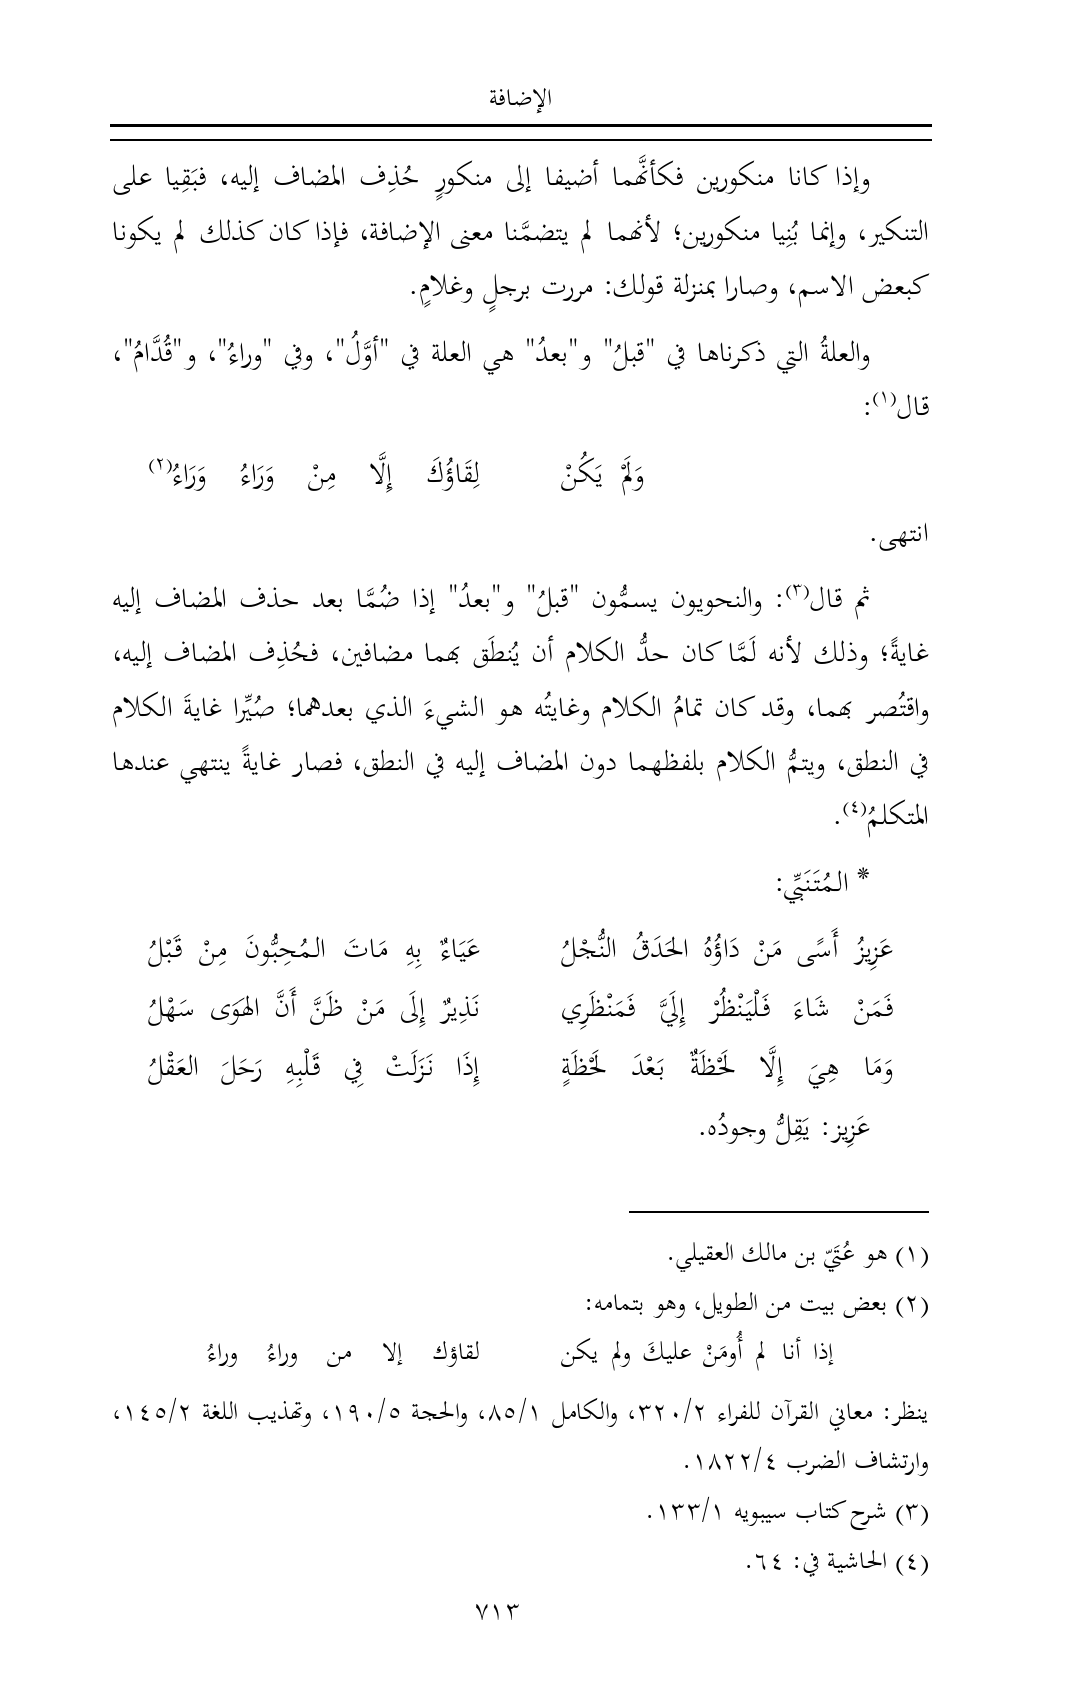 الإضافة
وإذا كانا منكورين فكأنَّهما أضيفا إلى منكورٍ حُذِف المضاف إليه، فبَقِيا على
التنكير، وإنما بُنِيا منكورين؛ لأنهما لم يتضمَّنا معنى الإضافة، فإذا كان كذلك لم يكونا
كبعض الاسم، وصارا بمنزلة قولك: مررت برجلٍ وغلامٍ.
والعلةُ التي ذكرناها في "قبلُ" و"بعدُ" هي العلة في "أوَّلُ"، وفي "وراءُ"، و"قُدَّامُ"،
قال(١):
وَلَمْ يَكُنْ لِقَاؤُكَ إِلَّا مِنْ وَرَاءُ وَرَاءُ(٢)
انتهى.
ثم قال(٣): والنحويون يسمُّون "قبلُ" و"بعدُ" إذا ضُمَّا بعد حذف المضاف إليه
غايةً؛ وذلك لأنه لَمَّا كان حدُّ الكلام أن يُنطَق بهما مضافين، فحُذِف المضاف إليه،
واقتُصر بهما، وقد كان تمامُ الكلام وغايتُه هو الشيءَ الذي بعدهما؛ صُيِّرا غايةَ الكلام
في النطق، ويتمُّ الكلام بلفظهما دون المضاف إليه في النطق، فصار غايةً ينتهي عندها
المتكلمُ(٤).
* المُتَنَبِّي:
عَزِيزُ أَسًى مَنْ دَاؤُهُ الحَدَقُ النُّجْلُ عَيَاءٌ بِهِ مَاتَ المُحِبُّونَ مِنْ قَبْلُ
فَمَنْ شَاءَ فَلْيَنْظُرْ إِلَيَّ فَمَنْظَرِي نَذِيرٌ إِلَى مَنْ ظَنَّ أَنَّ الهَوَى سَهْلُ
وَمَا هِيَ إِلَّا لَحْظَةٌ بَعْدَ لَحْظَةٍ إِذَا نَزَلَتْ فِي قَلْبِهِ رَحَلَ العَقْلُ
عَزِيز: يَقِلُّ وجودُه.
(١) هو عُتَيّ بن مالك العقيلي.
(٢) بعض بيت من الطويل، وهو بتمامه:
إذا أنا لم أُومَنْ عليكَ ولم يكن لقاؤك إلا من وراءُ وراءُ
ينظر: معاني القرآن للفراء ٣٢٠/٢، والكامل ٨٥/١، والحجة ١٩٠/٥، وتهذيب اللغة ١٤٥/٢،
وارتشاف الضرب ١٨٢٢/٤.
(٣) شرح كتاب سيبويه ١٣٣/١.
(٤) الحاشية في: ٦٤.
٧١٣